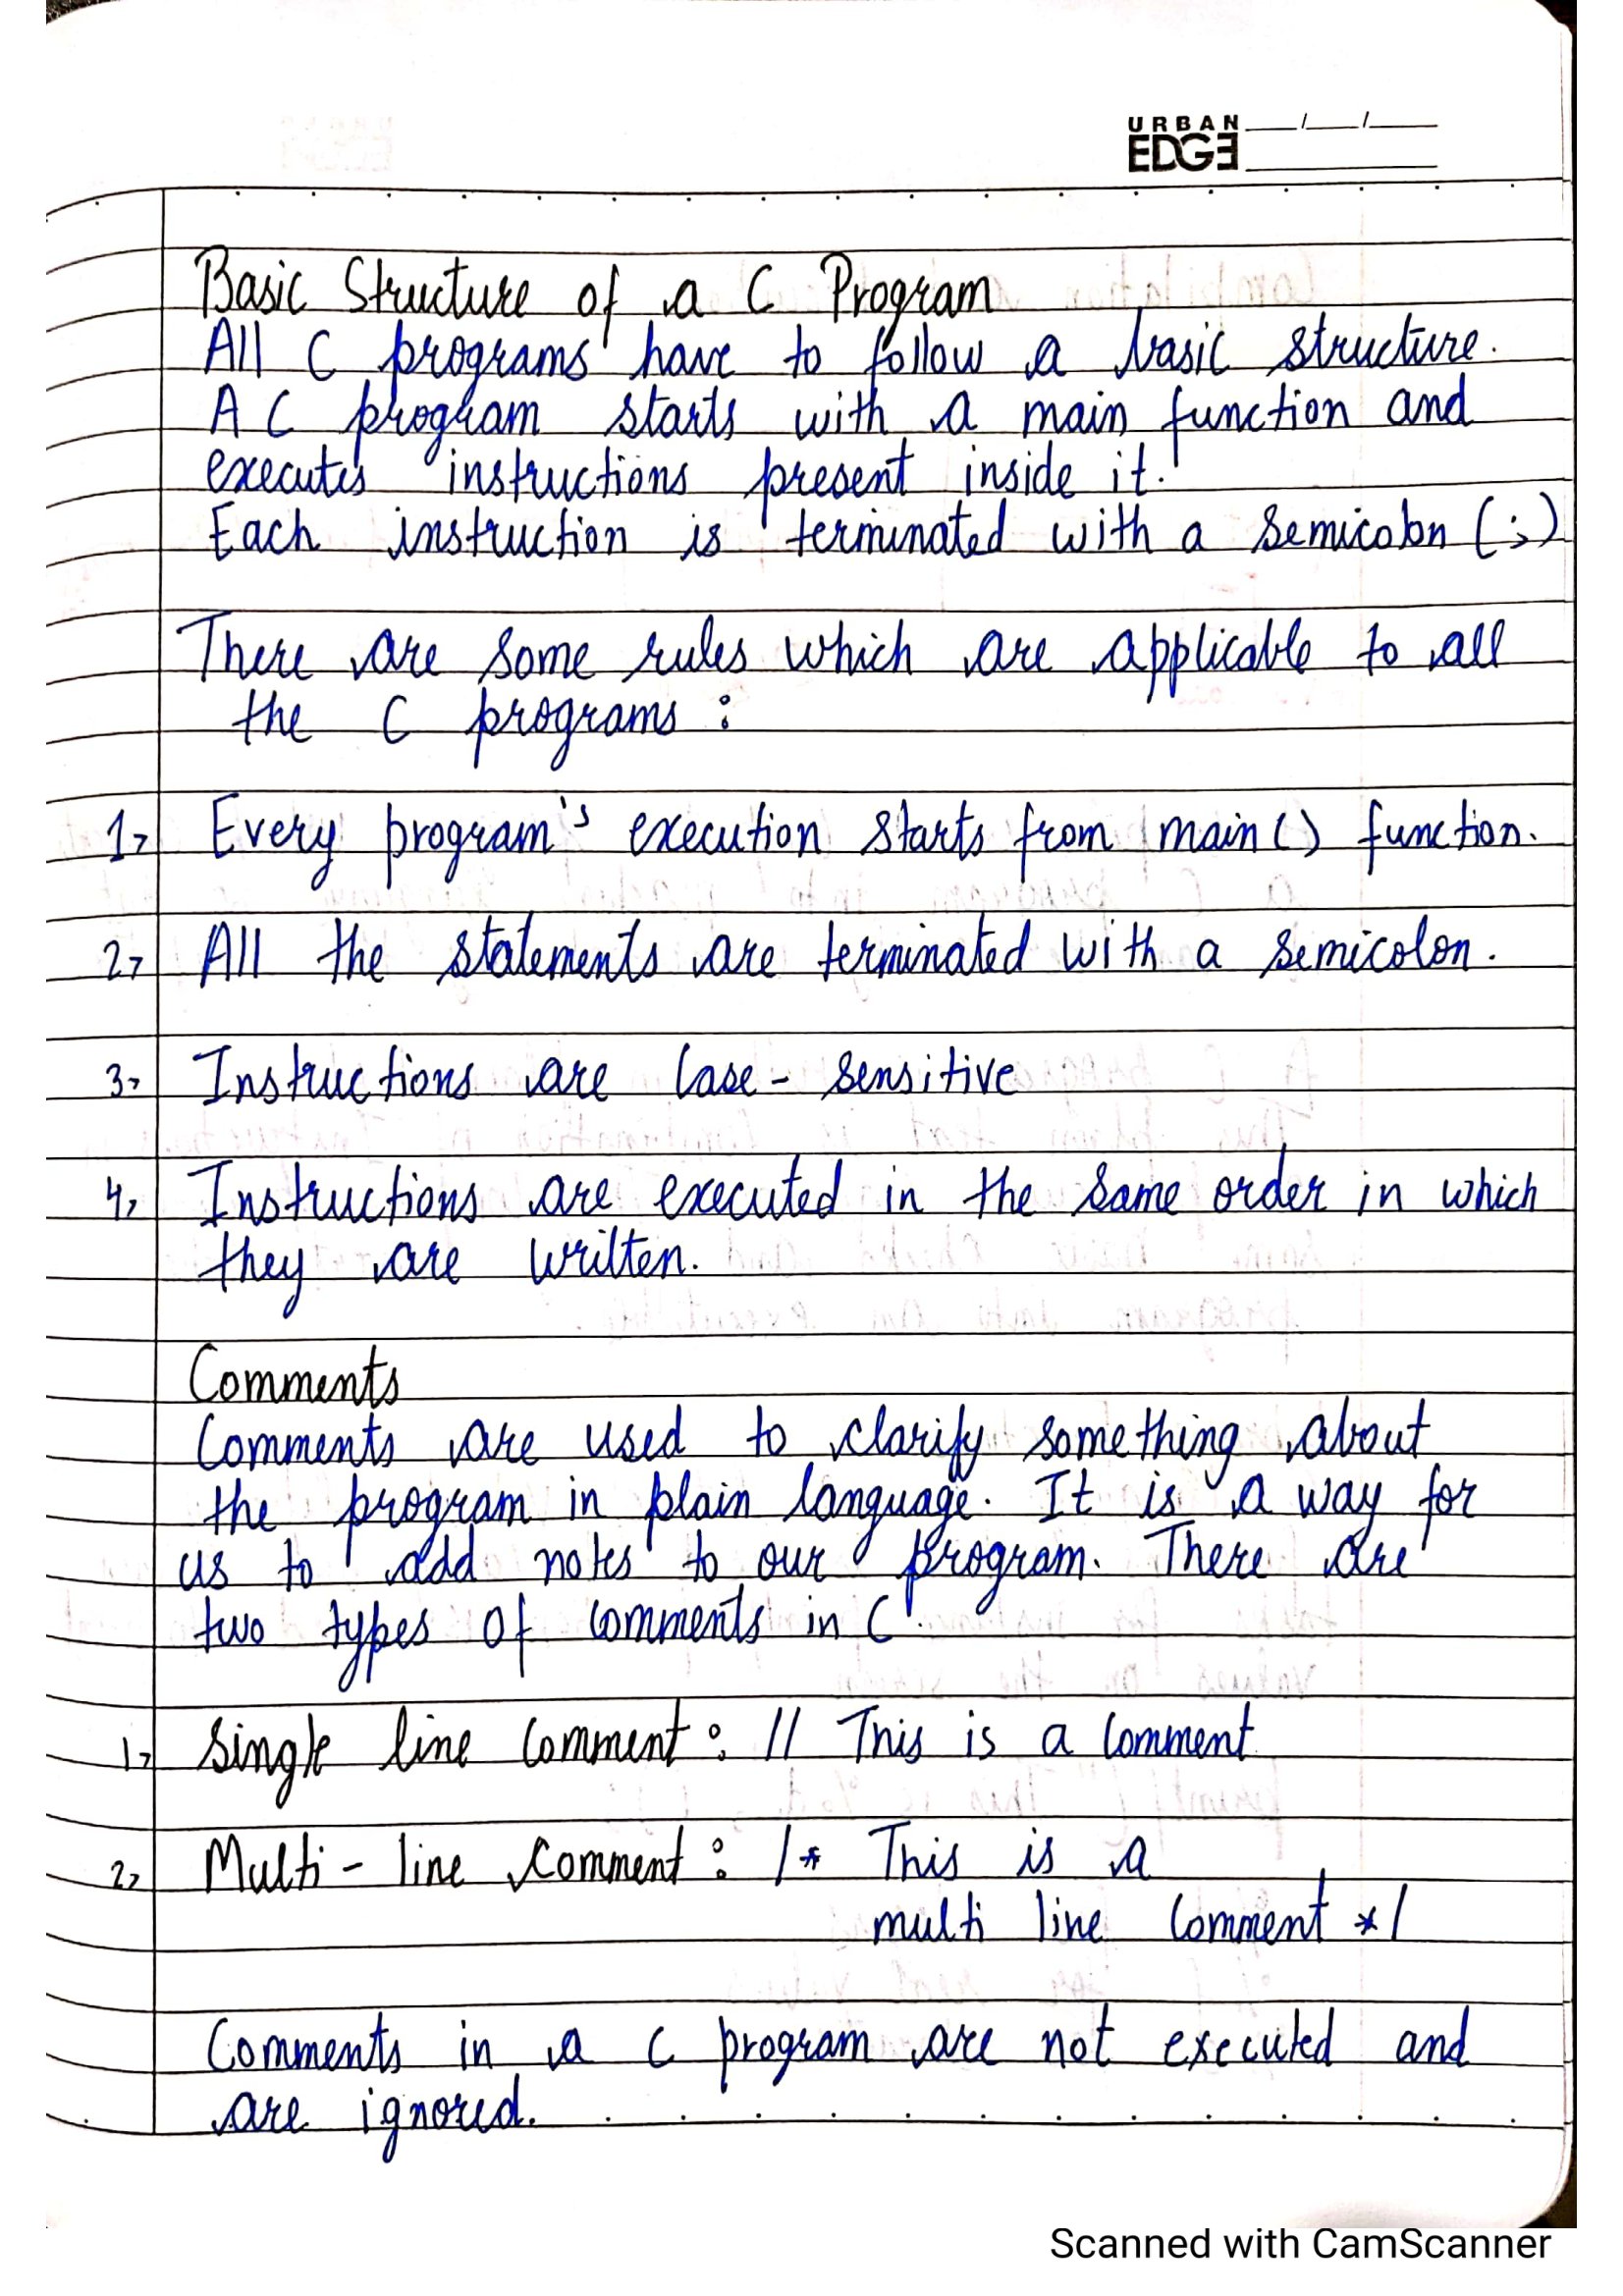 URBAN
EDGE
Basic Structure of a C Program
All C programs have to follow a basic structure.
A C program starts with a main function and
executes instructions present inside it.
Each instruction is terminated with a semicolon (;)
There are some rules which are applicable to all
the C programs :
1> Every program's execution starts from main() function.
2> All the statements are terminated with a semicolon.
3> Instructions are case-sensitive
4> Instructions are executed in the same order in which
they are written.
Comments
Comments are used to clarify something about
the program in plain language. It is a way for
us to add notes to our program. There are
two types of comments in C.
1> Single line comment : // This is a comment
2> Multi-line comment : /* This is a
multi line comment */
Comments in a C program are not executed and
are ignored.
Scanned with CamScanner